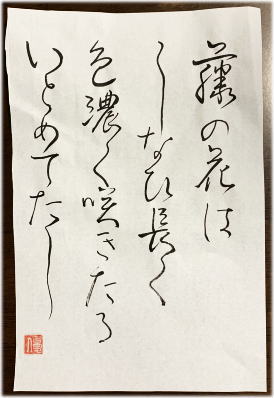 藤の花は
しなひ長く
色濃く咲きたる
いとめてたし